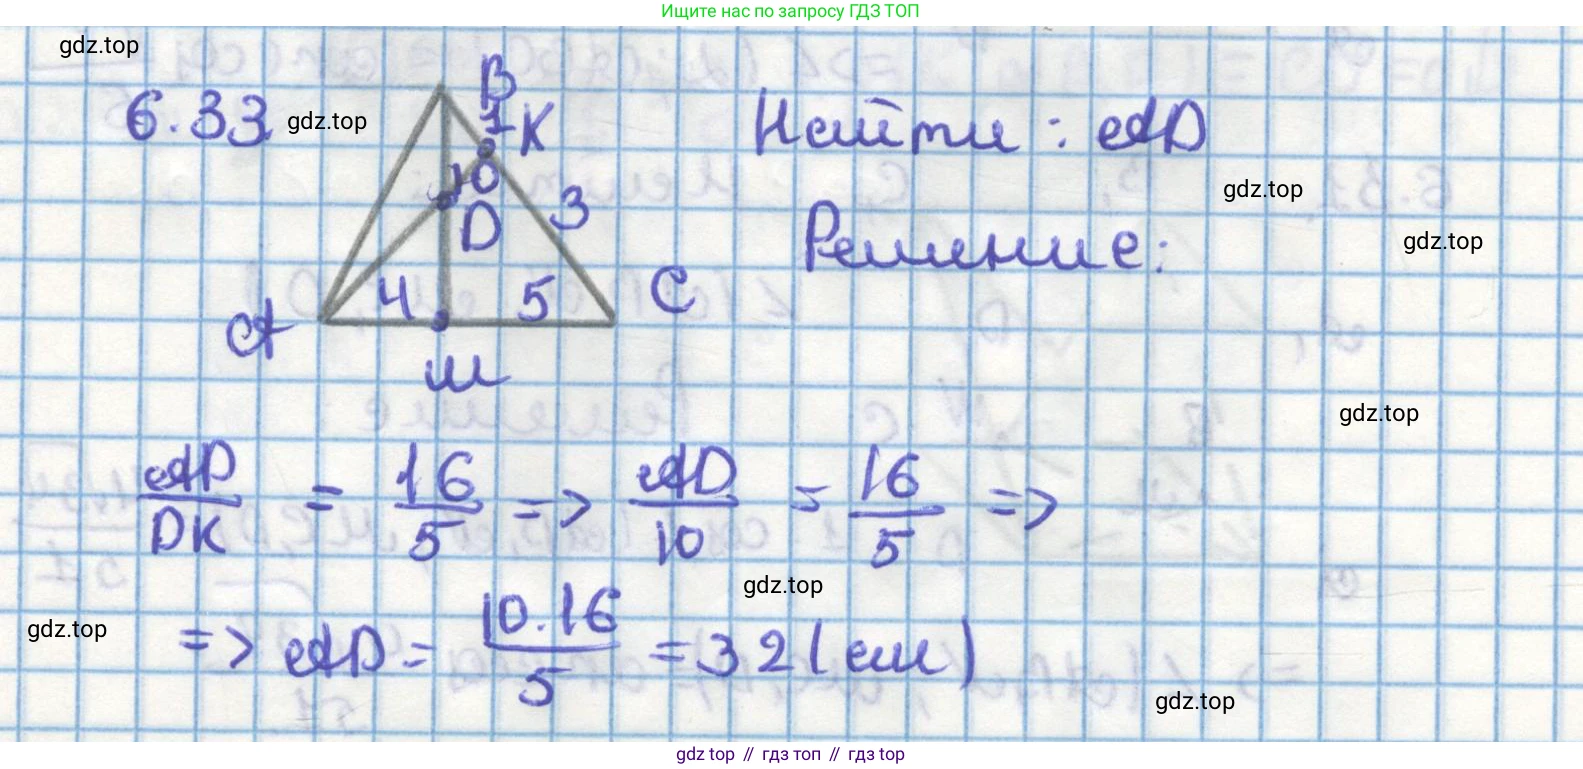 Ищите нас по запросу ГДЗ ТОП
gdz.top
6.33
gdz.top
B
1 K
10
D
3
4
5
C
A
M
Найти: AD
gdz.top
Решение:
gdz.top
gdz.top
AD/DK = 16/5 => AD/10 = 16/5 =>
gdz.top
gdz.top
=> AD = 10·16/5 = 32 (см)
gdz.top
gdz top // гдз топ // гдз top